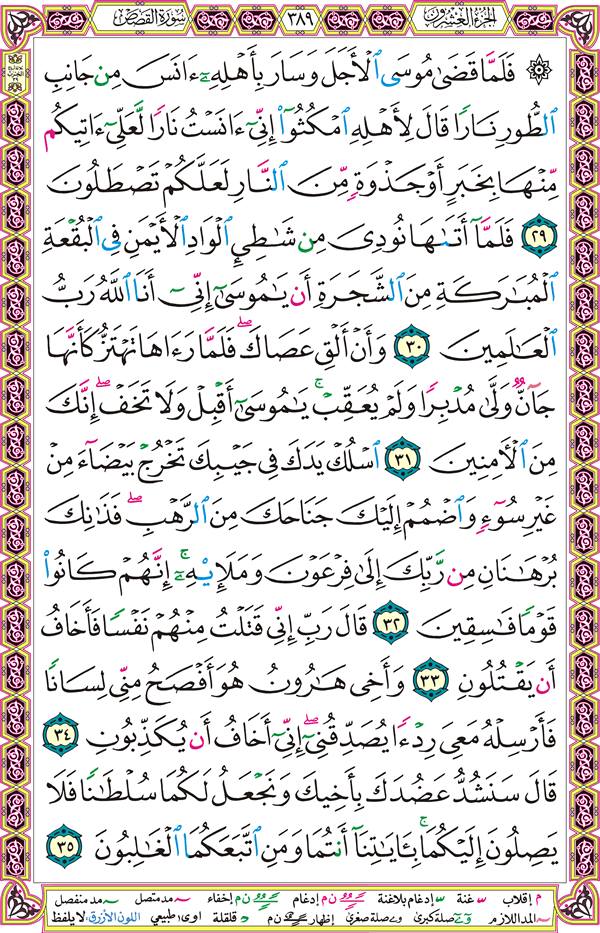 الجزء العشرون ٣٨٩ سورة القصص
۞ فَلَمَّا قَضَىٰ مُوسَى الْأَجَلَ وَسَارَ بِأَهْلِهِ ءَانَسَ مِن جَانِبِ
الطُّورِ نَارًا قَالَ لِأَهْلِهِ امْكُثُوا إِنِّي ءَانَسْتُ نَارًا لَّعَلِّي ءَاتِيكُم
مِّنْهَا بِخَبَرٍ أَوْ جَذْوَةٍ مِّنَ النَّارِ لَعَلَّكُمْ تَصْطَلُونَ
٢٩ فَلَمَّا أَتَاهَا نُودِيَ مِن شَاطِئِ الْوَادِ الْأَيْمَنِ فِي الْبُقْعَةِ
الْمُبَارَكَةِ مِنَ الشَّجَرَةِ أَن يَامُوسَىٰ إِنِّي أَنَا اللَّهُ رَبُّ
الْعَالَمِينَ ٣٠ وَأَنْ أَلْقِ عَصَاكَ ۖ فَلَمَّا رَءَاهَا تَهْتَزُّ كَأَنَّهَا
جَانٌّ وَلَّىٰ مُدْبِرًا وَلَمْ يُعَقِّبْ ۚ يَامُوسَىٰ أَقْبِلْ وَلَا تَخَفْ ۖ إِنَّكَ
مِنَ الْآمِنِينَ ٣١ اسْلُكْ يَدَكَ فِي جَيْبِكَ تَخْرُجْ بَيْضَاءَ مِنْ
غَيْرِ سُوءٍ وَاضْمُمْ إِلَيْكَ جَنَاحَكَ مِنَ الرَّهْبِ ۖ فَذَانِكَ
بُرْهَانَانِ مِن رَّبِّكَ إِلَىٰ فِرْعَوْنَ وَمَلَإِيْهِ ۚ إِنَّهُمْ كَانُوا
قَوْمًا فَاسِقِينَ ٣٢ قَالَ رَبِّ إِنِّي قَتَلْتُ مِنْهُمْ نَفْسًا فَأَخَافُ
أَن يَقْتُلُونِ ٣٣ وَأَخِي هَارُونُ هُوَ أَفْصَحُ مِنِّي لِسَانًا
فَأَرْسِلْهُ مَعِيَ رِدْءًا يُصَدِّقُنِي ۖ إِنِّي أَخَافُ أَن يُكَذِّبُونِ ٣٤
قَالَ سَنَشُدُّ عَضُدَكَ بِأَخِيكَ وَنَجْعَلُ لَكُمَا سُلْطَانًا فَلَا
يَصِلُونَ إِلَيْكُمَا ۚ بِـَٔايَاتِنَا أَنتُمَا وَمَنِ اتَّبَعَكُمَا الْغَالِبُونَ ٣٥
م إقلاب غنة إدغام بلاغنة ن م إدغام ن م إخفاء مد متصل مد منفصل
المد اللازم صلة كبرى صلة صغرى إظهار ن م قلقلة اوى طبيعي اللون الأزرق لا يلفظ